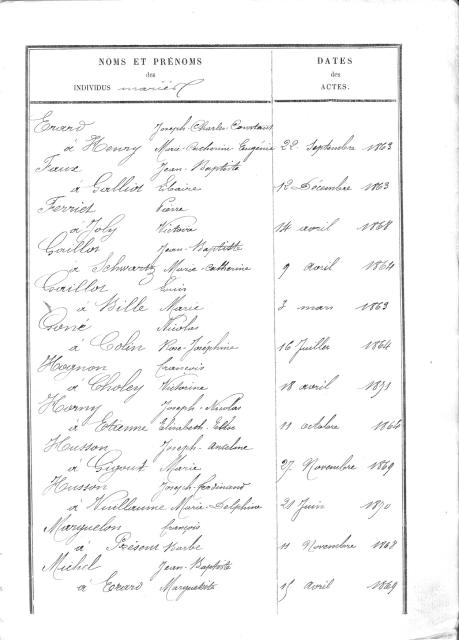 NOMS ET PRÉNOMS DATES
des des
INDIVIDUS mariés ACTES.
Erard Joseph-Charles-Constant
à Henry Marie-Catherine Eugénie 22 Septembre 1863
Faux Jean-Baptiste
à Galliot 12 Décembre 1863
Ferriet Pierre
à Joly Victoire 14 avril 1868
Gaillot Jean-Baptiste
à Schwartz Marie-Catherine 9 avril 1864
Gaillot Louis
à Bille Marie 3 mars 1863
Goné Nicolas
à Colin Rose-Joséphine 16 Juillet 1864
Hognon françois
à Choley Victorine 18 avril
Horny Joseph-Nicolas
à Etienne Elisabeth 11 octobre 1864
Husson Joseph-Anselme
à Gigout Marie 27 Novembre 1869
Husson Joseph-Ferdinand
à Vuillaume Marie-Delphine 21 Juin 1870
Marguelon françois
à Présent Barbe 11 Novembre 1868
Michel Jean-Baptiste
à Erard Marguerite 15 avril 1869